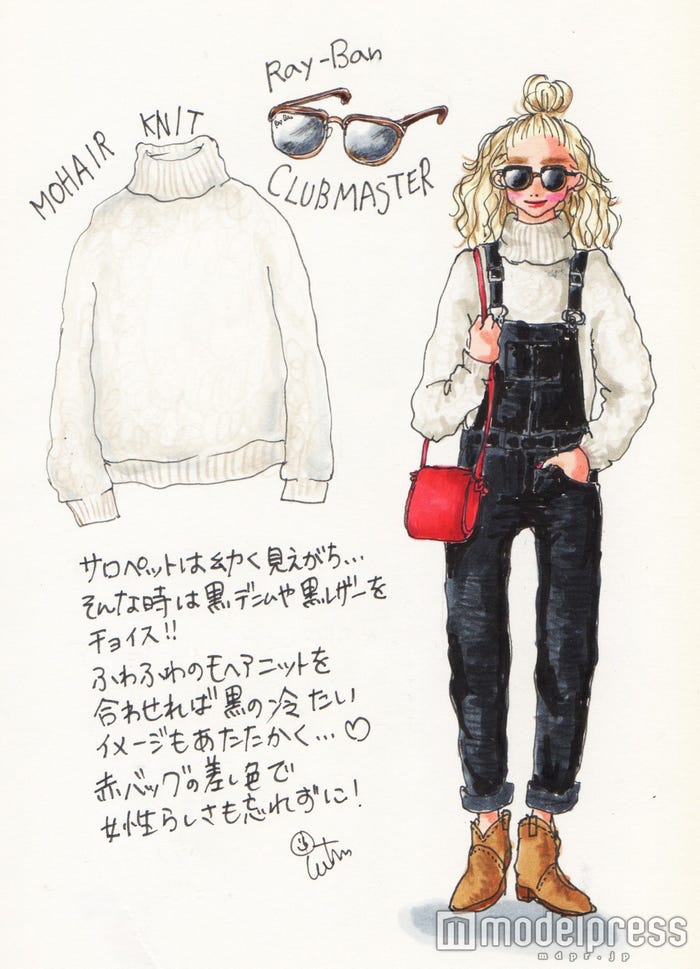 Ray-Ban
MOHAIR KNIT
CLUBMASTER
サロペットは幼く見えがち…
そんな時は黒デニムや黒レザーを
チョイス!!
ふわふわのモヘアニットを
合わせれば黒の冷たい
イメージもあたたかく…♡
赤バッグの差し色で
女性らしさも忘れずに!
modelpress
mdpr.jp